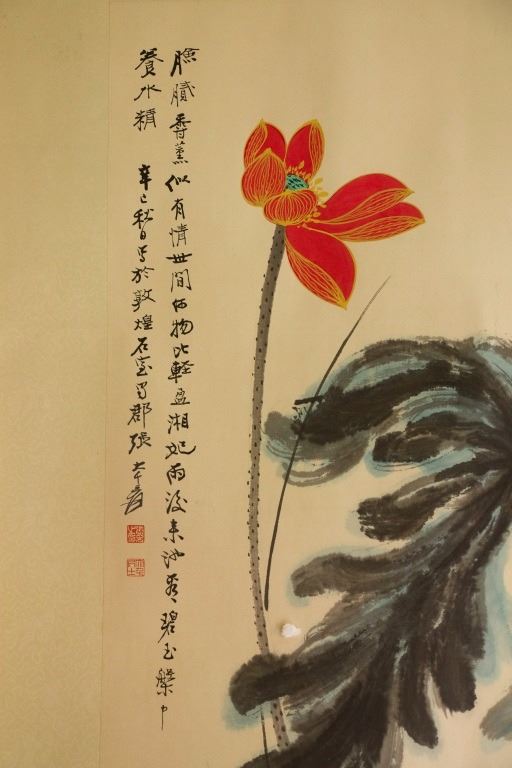 臉膩香薰似有情世間何物比輕盈湘妃雨後来池看碧玉槃中
養水精 辛巳秋日写於敦煌石室蜀郡張大千爰